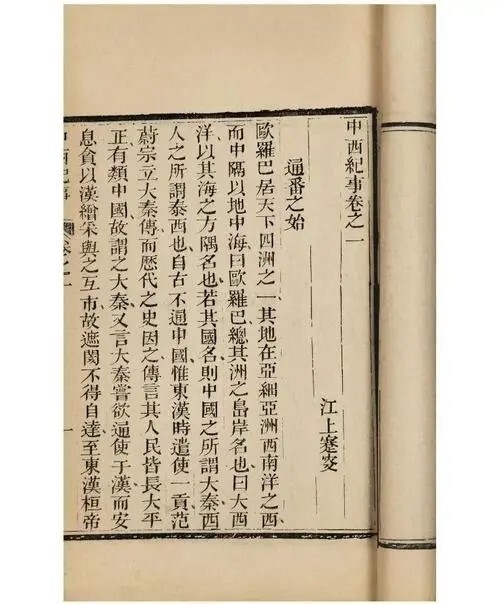 中西紀事卷之一
江上蹇叜
通番之始
歐羅巴居天下四洲之一其地在亞細亞洲西南洋之西
而中隔以地中海曰歐羅巴總其洲之島岸名也曰大西
洋以其海之方隅名也若其國名則中國之所謂大秦西
人之所謂泰西也自古不通中國惟東漢時遣使一貢范
蔚宗立大秦傳而歷代之史因之傳言其人民皆長大平
正有類中國故謂之大秦又言大秦嘗欲通使于漢而安
息貪以漢繒采與之互市故遮閡不得自達至東漢桓帝
中西紀事 卷之一 一